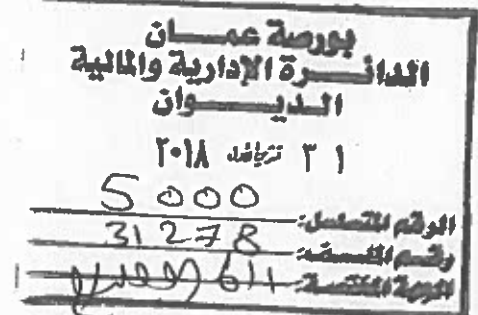 بورصة عمـــان
الدائـــرة الإدارية والمالية
الديـــوان
٣١ تموز ٢٠١٨
الرقم المتسلسل: 5000
رقم الملف: 31278
الجهة المختصة: 611